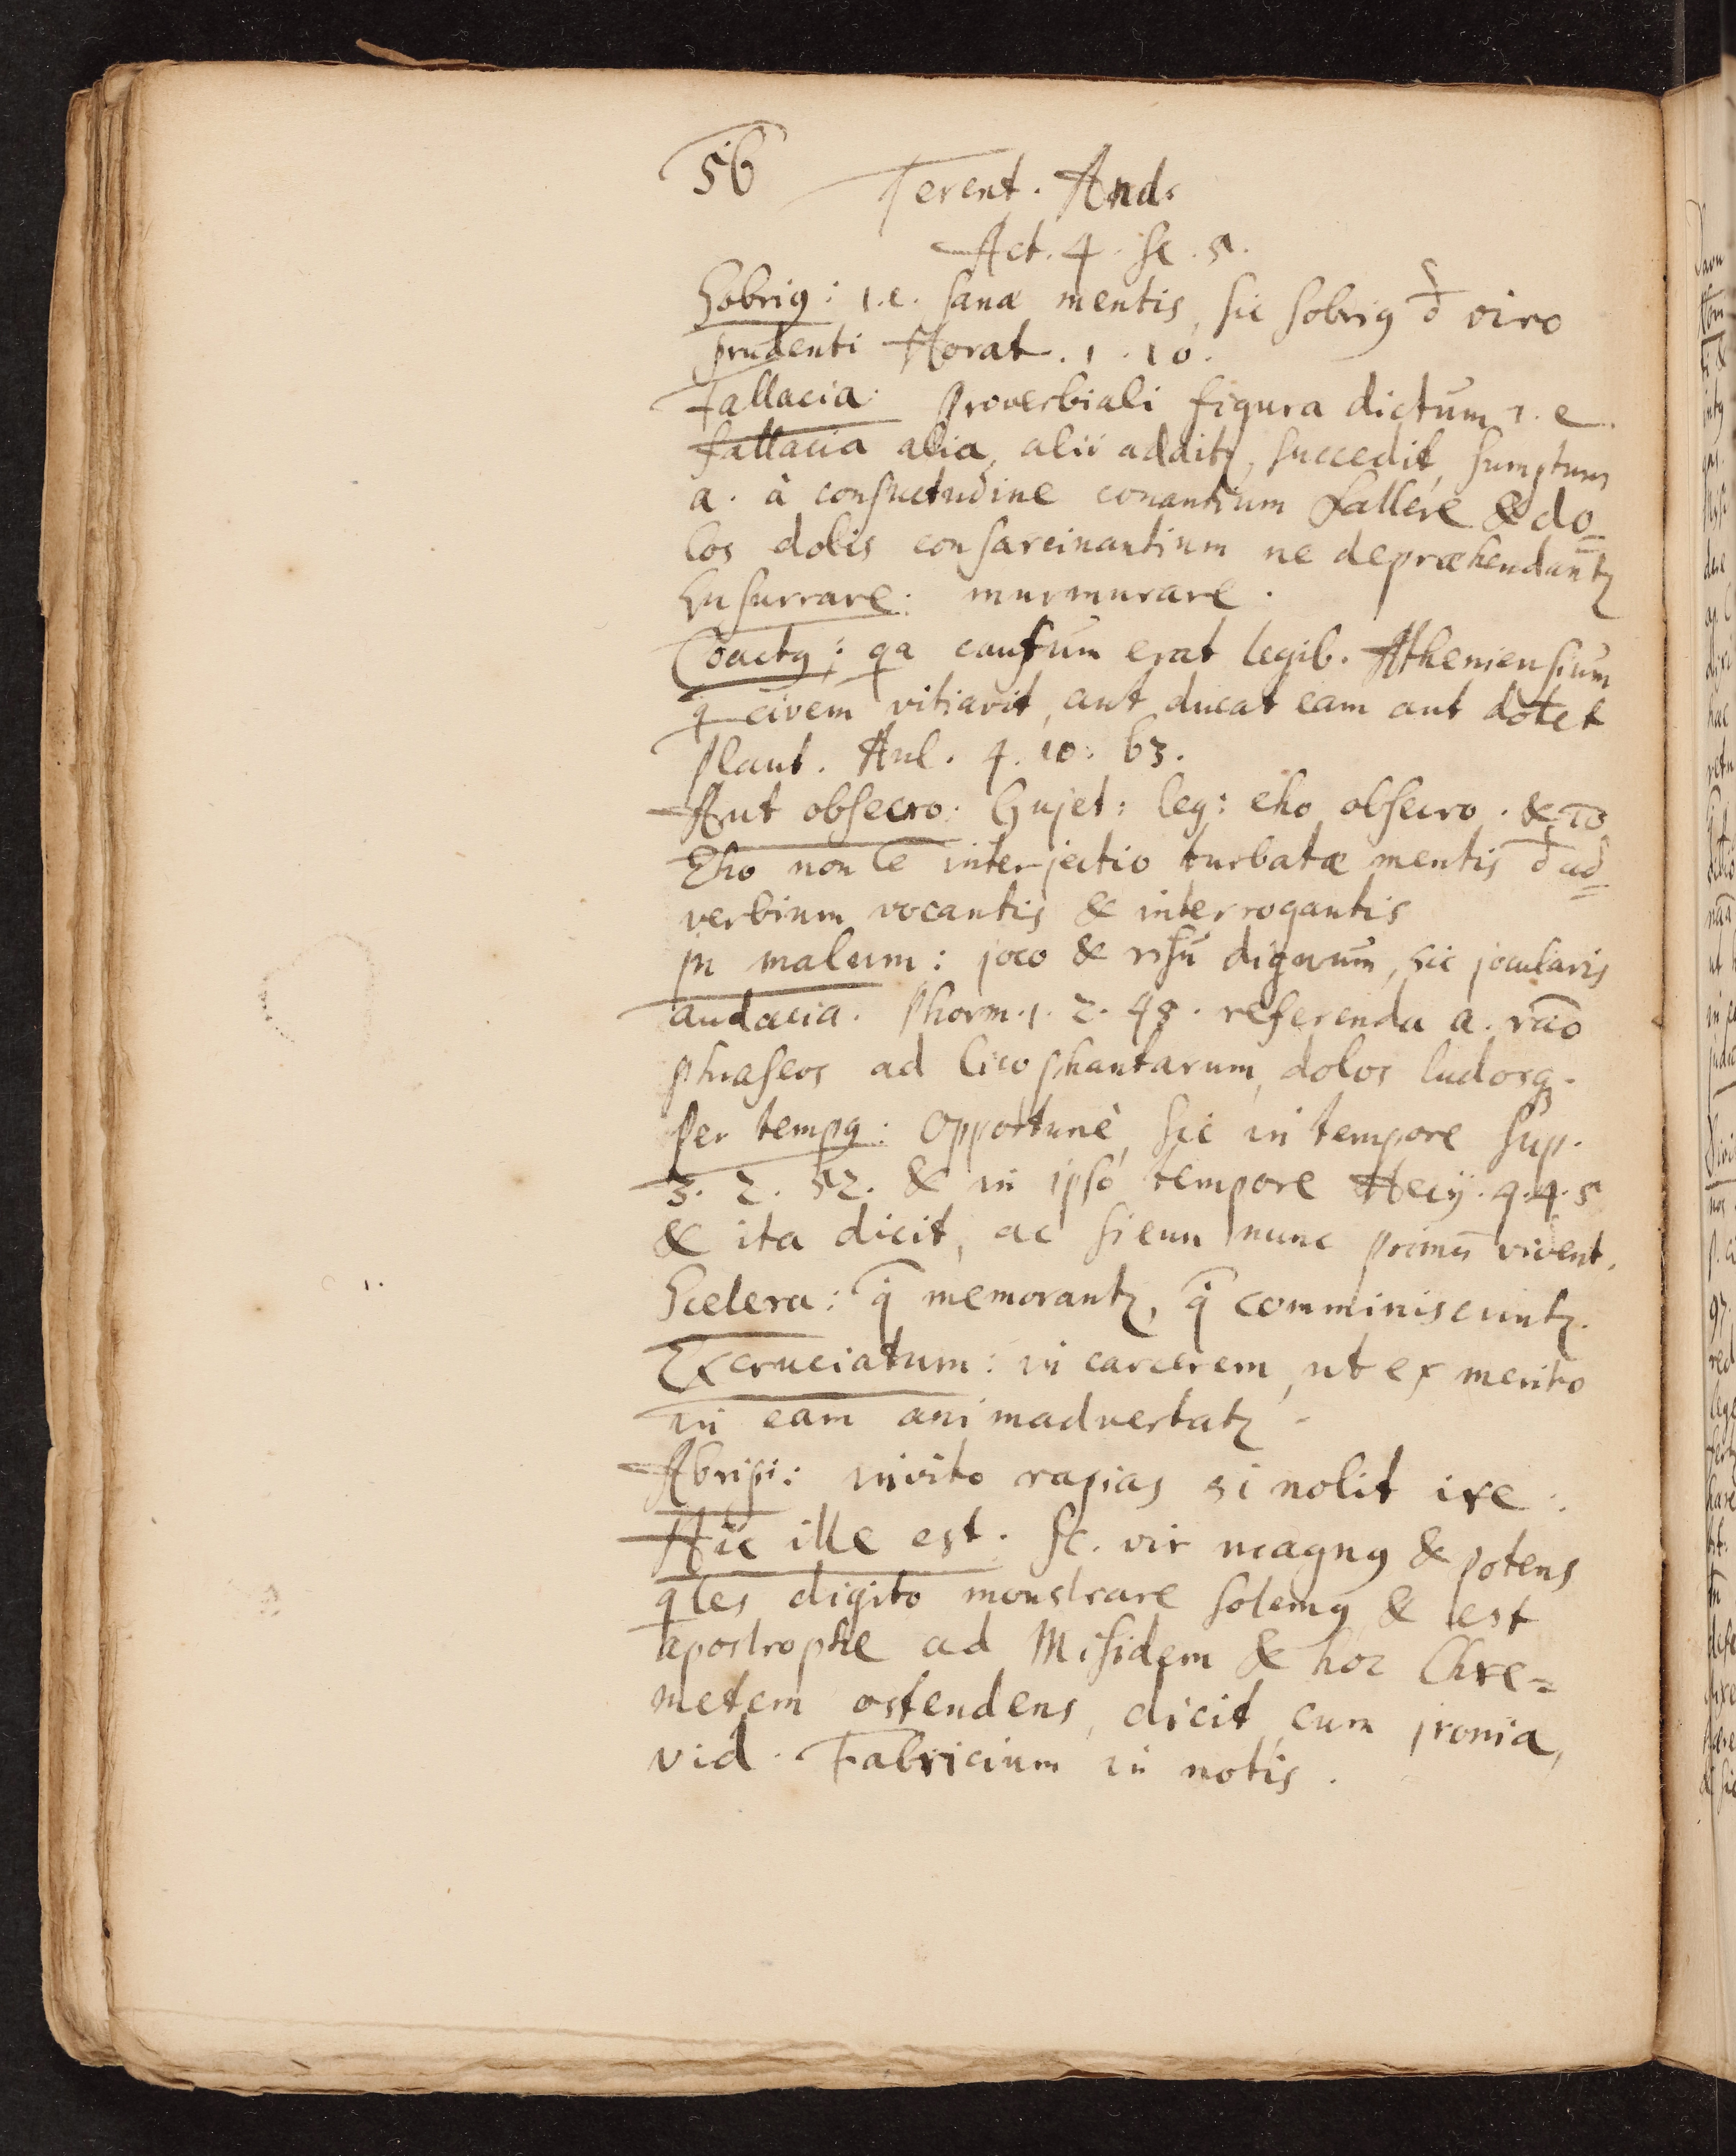 56 Terent. And.
Act. 4. sc. 5.
Sobrig: i.e. sanæ mentis, sic sobrig đ viro
prudenti Horat. 1. 10.
Fallacia: proverbiali figura dictum i.e.
fallacia alia, alii additꝛ, succedit, sumptum
a. à consuetudine conantium fallere & do=
los dolis consarcinantium ne depræhendantꝛ
Susurrare: murmurare.
Coactꝯ: qa cautum erat legib. Atheniensium
q civem vitiavit, aut ducat eam aut dotet
Plaut. Aul. 4. 10. 63.
Aut obsecro: Gujet: leg: eho obsecro. &
Eho non ē interjectio turbatæ mentis đ ad=
verbium vocantis & interrogantis
in malum: joco & risu dignum, sic jocularis
audacia. Phorm. 1. 2. 48. referenda a. rāo
phraseos ad sicophantarum, dolos ludosq.
Per tempꝯ: opportunè, sic in tempore sup.
3. 2. 52. & in ipso tempore Hecy. 4. 4. 5
& ita dicit, ac si eum nunc primū vident.
Scelera: q̄ memorantꝛ, q̄ comminiscuntꝛ.
Excruciatum: in carcerem, ut ex merito
in eam animadvertatꝛ.
Abripi: invito rapias si nolit ire.
Hic ille est. sc. vir magnꝯ & potens
qles digito monstrare solemꝯ & est
apostrophe ad Misidem & hoc Chre=
metem ostendens, dicit cum ironia,
vid. Fabricium in notis.